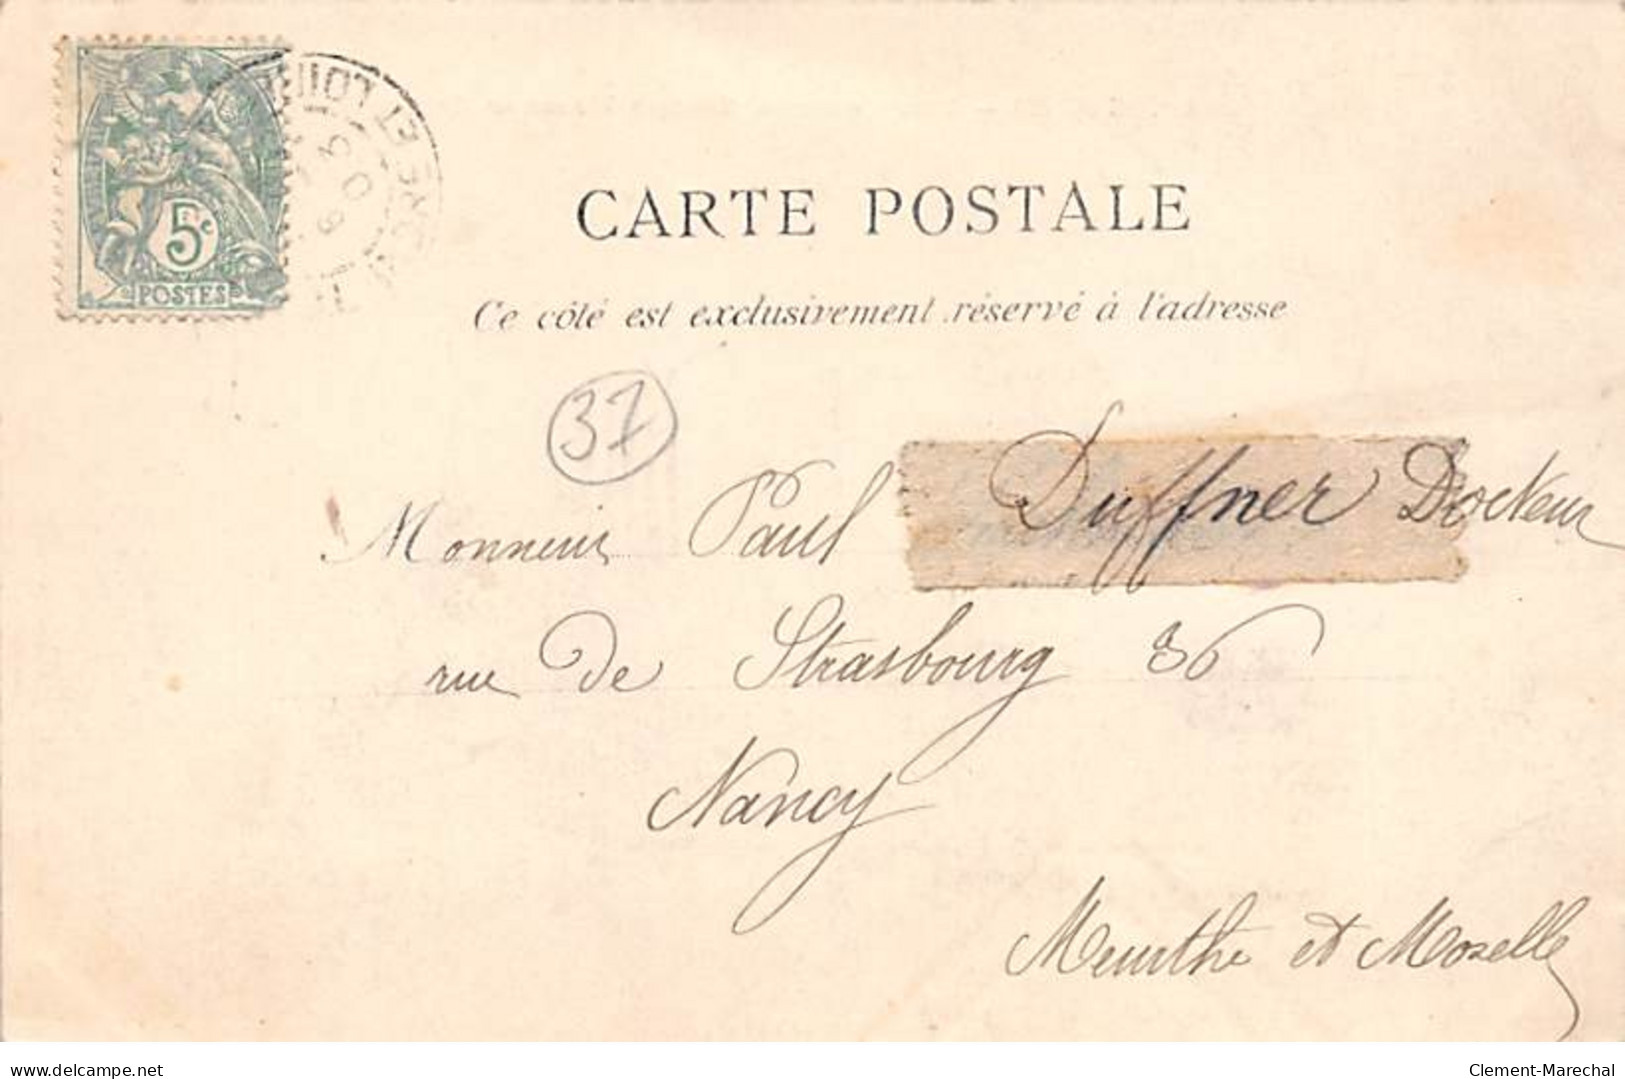 5c
POSTES
ET LOIRE
03
CARTE POSTALE
Ce côté est exclusivement réservé à l'adresse
37
Monsieur Paul Duffner Docteur
rue de Strasbourg 36
Nancy
Meurthe et Moselle
www.delcampe.net
Clement-Marechal